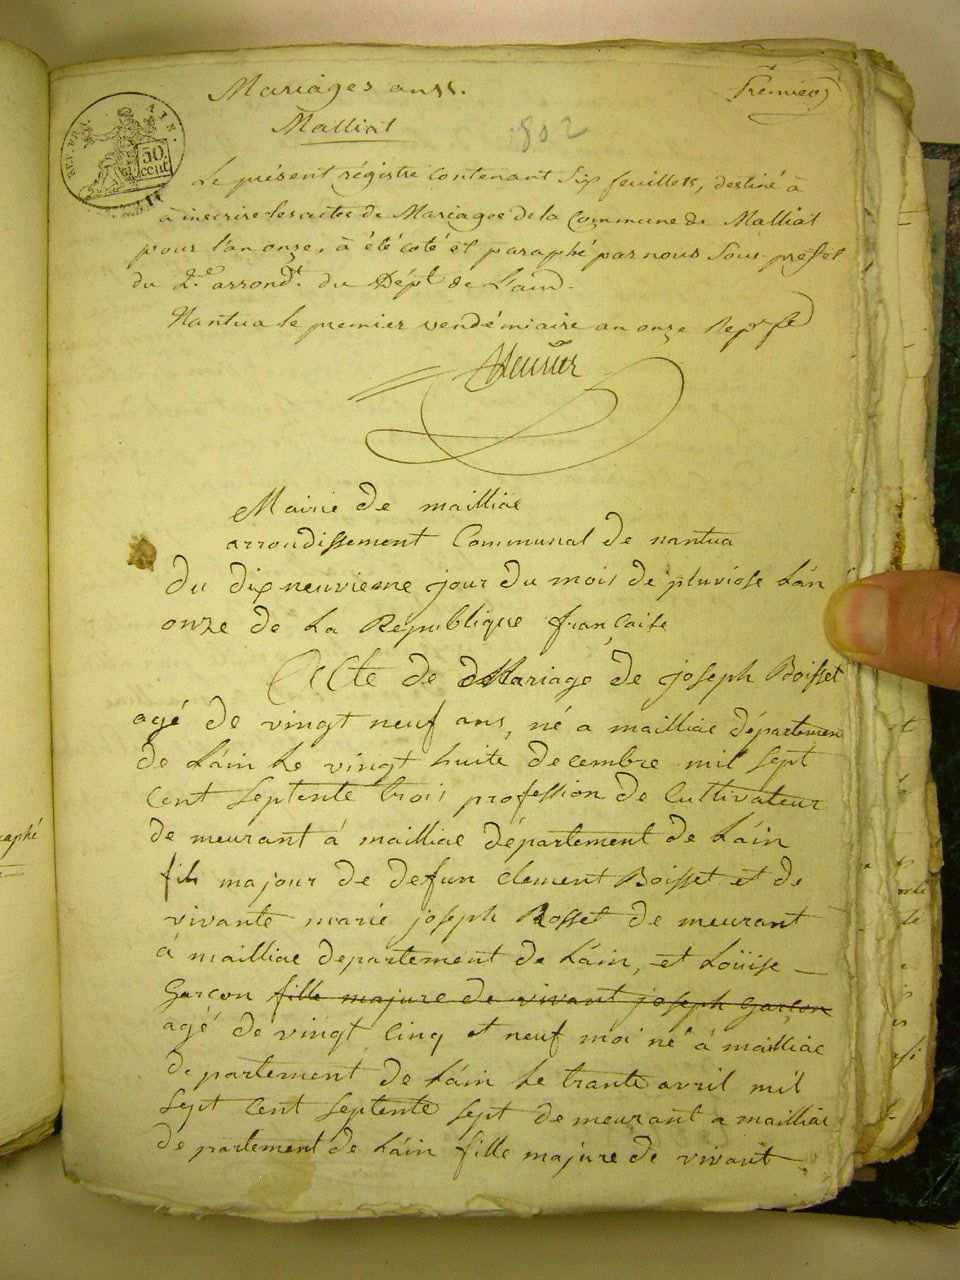 Mariages an 11.
Premier
Malliat
502
REP. FRA. AIN.
50. cent
Le présent régistre contenant Six feuillets, destiné à
à inscrire les actes de Mariages de la Commune de Malliat
pour l'an onze, à été coté et paraphé par nous Sous-préfet
du 2.e arrond.t du Dép.t de L'ain.
Nantua le premier vendémiaire an onze Rep
Mairie de mailliac
arrondissement Communal de nantua
du dix neuvieme jour du mois de pluviose Lán
onze de La République française
Acte de Mariage de joseph Boisset
agé de vingt neuf ans, né a mailliac départemen
de Láin Le vingt huite decembre mil sept
cent septente trois profession de Cultivateur
de meurant á mailliac département de Láin
fils majour de defun clement Boisset et de
vivante marie joseph Rosset de meurant
á mailliac departement de Láin, et Loüise
Garcon fille majure de vivant joseph Garcon
agé de vingt Cinq et neuf moi né á mailliac
departement de Láin Le trante avril mil
sept Cent septente sept demeurant a mailliac
de partement de Láin fille majure de vivant
raphé